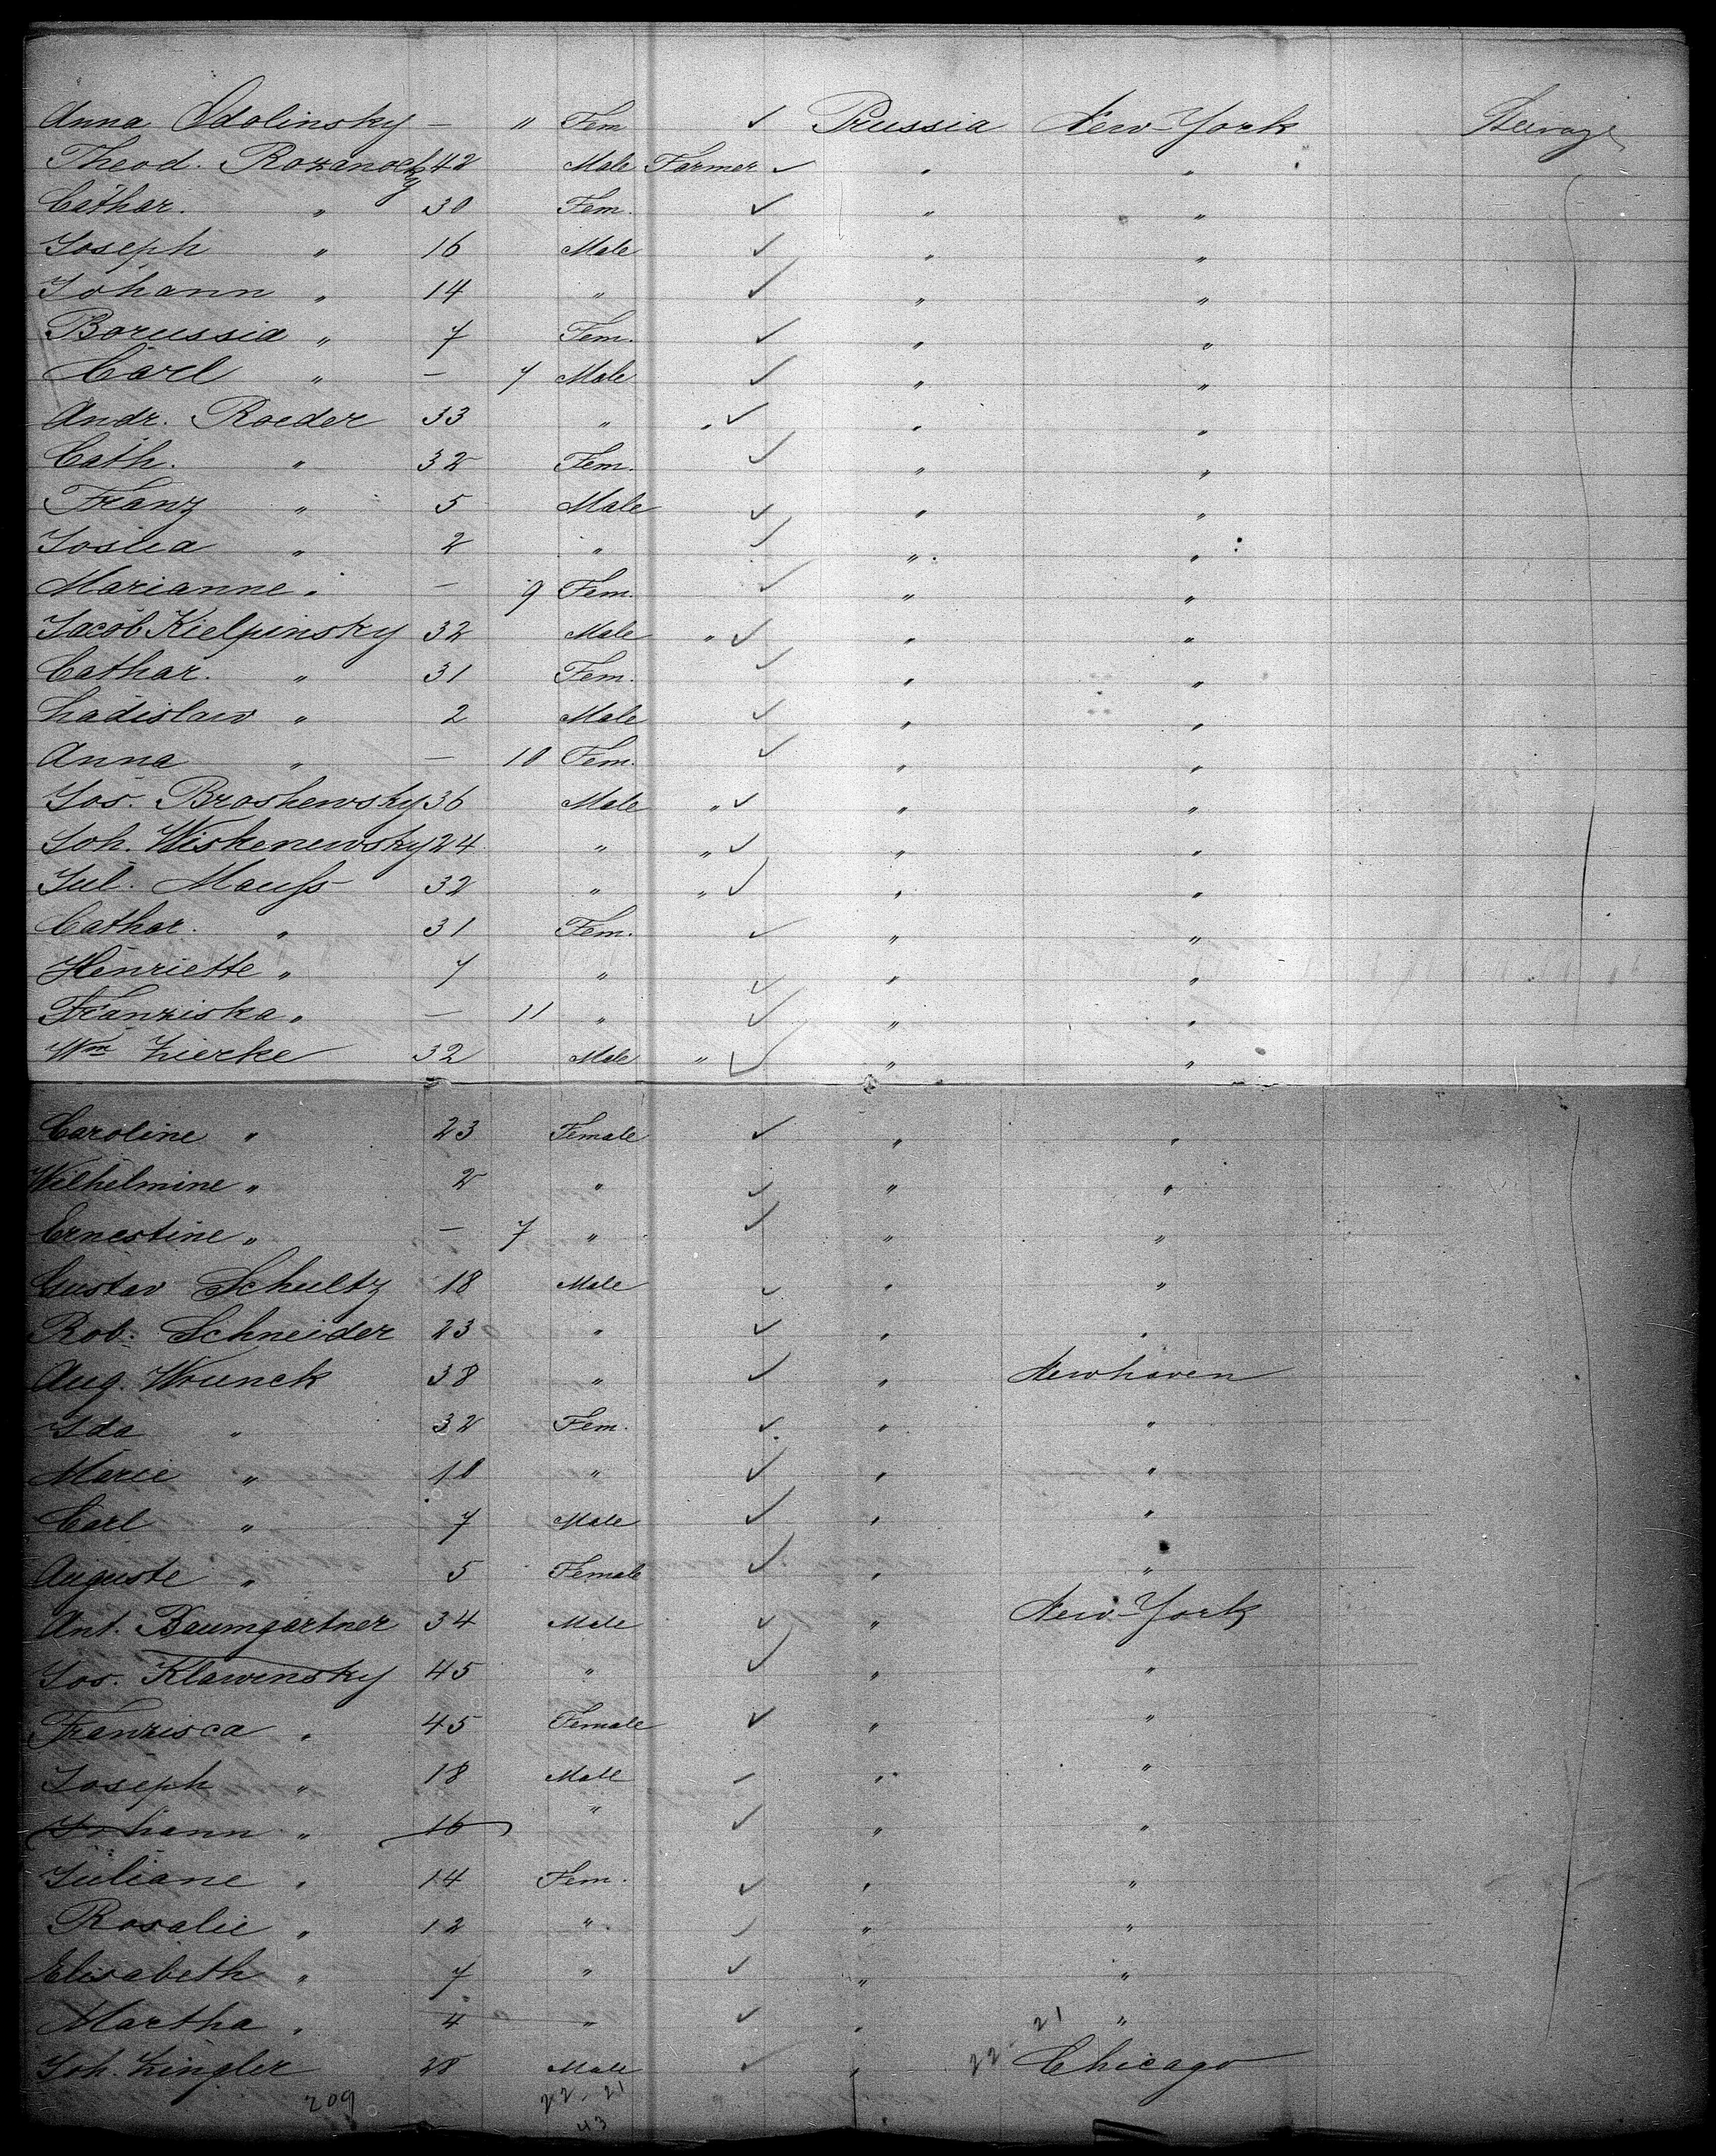 Anna Odolinsky — " Fem ✓ Prussia New-York Steerage
Theod. Rozanocky 42 Male Farmer ✓ " "
Cathar. " 30 Fem. ✓ " "
Joseph " 16 Male ✓ " "
Johann " 14 " ✓ " "
Borussia " 7 Fem. ✓ " "
Carl " — 7 Male ✓ " "
Andr. Roeder 33 " " ✓ " "
Cath. " 32 Fem. ✓ " "
Franz " 5 Male ✓ " "
" 2 " ✓ " "
Marianne " — 9 Fem. ✓ " "
Jacob Kielpinsky 32 Male " ✓ " "
Cathar. " 31 Fem. ✓ " "
Ladislaw " 2 Male ✓ " "
Anna " — 10 Fem. ✓ " "
Jos. Broshewsky 36 Male " ✓ " "
Joh. Wiskenewsky 24 " " ✓ " "
Jul. Mauss 32 " " ✓ " "
Cathar. " 31 Fem. ✓ " "
Henriette " 7 " ✓ " "
Franziska " — 11 " ✓ " "
Wm Zierke 32 Male " ✓ " "
Caroline " 23 Female ✓ " "
Wilhelmine " 2 " ✓ " "
Ernestine " — 7 " ✓ " "
Gustav Schultz 18 Male ✓ " "
Rob. Schneider 23 " ✓ " "
Aug. Wrunck 38 " ✓ " Newhaven
Ida " 32 Fem. ✓ " "
Marie " 10 " ✓ " "
Carl " 7 Male ✓ " "
Auguste " 5 Female ✓ " "
Ant. Baumgartner 34 Male ✓ " New-York
Jos. Klawensky 45 " ✓ " "
Franzisca " 45 Female ✓ " "
Joseph " 18 Male ✓ " "
Johann " 16 " ✓ " "
Juliane " 14 Fem. ✓ " "
Rosalie " 12 " ✓ " "
Elisabeth " 7 " ✓ " "
Martha " 4 " ✓ " 21 "
Joh. Zingler 28 Male ✓ " 22 Chicago
209 22 - 21
43